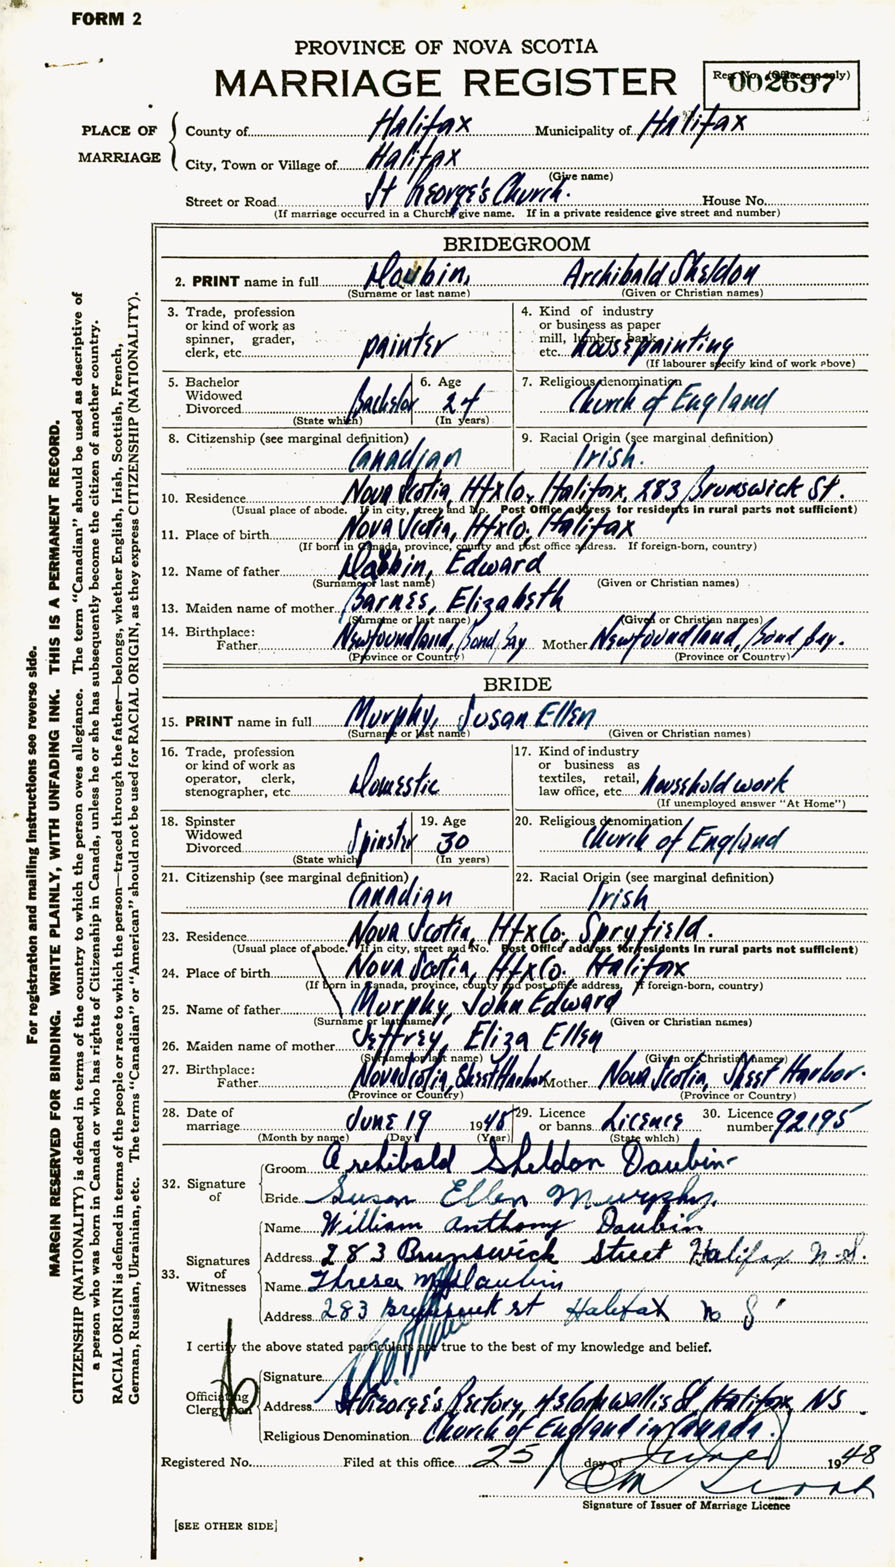 FORM 2
PROVINCE OF NOVA SCOTIA
MARRIAGE REGISTER
Reg. No. (Office use only)
002697
PLACE OF MARRIAGE
County of Halifax Municipality of Halifax
City, Town or Village of Halifax
(Give name)
Street or Road St George's Church. House No.
(If marriage occurred in a Church, give name. If in a private residence give street and number)
BRIDEGROOM
2. PRINT name in full Daubin, Archibald Sheldon
(Surname or last name) (Given or Christian names)
3. Trade, profession or kind of work as spinner, grader, clerk, etc. painter
4. Kind of industry or business as paper mill, lumber, bank, etc. house painting
(If labourer specify kind of work above)
5. Bachelor Widowed Divorced Bachelor
(State which)
6. Age 24
(In years)
7. Religious denomination Church of England
8. Citizenship (see marginal definition) Canadian
9. Racial Origin (see marginal definition) Irish.
10. Residence Nova Scotia, Hfx Co, Halifax, 283 Brunswick St.
(Usual place of abode. If in city, street and No. Post Office address for residents in rural parts not sufficient)
11. Place of birth Nova Scotia, Hfx Co, Halifax
(If born in Canada, province, county and post office address. If foreign-born, country)
12. Name of father Daubin, Edward
(Surname or last name) (Given or Christian names)
13. Maiden name of mother Barnes, Elizabeth
(Surname or last name) (Given or Christian names)
14. Birthplace:
Father Newfoundland, Bond Bay Mother Newfoundland, Bond Bay.
(Province or Country) (Province or Country)
BRIDE
15. PRINT name in full Murphy, Susan Ellen
(Surname or last name) (Given or Christian names)
16. Trade, profession or kind of work as operator, clerk, stenographer, etc. Domestic
17. Kind of industry or business as textiles, retail, law office, etc. household work
(If unemployed answer "At Home")
18. Spinster Widowed Divorced Spinster
(State which)
19. Age 30
(In years)
20. Religious denomination Church of England
21. Citizenship (see marginal definition) Canadian
22. Racial Origin (see marginal definition) Irish
23. Residence Nova Scotia, Hfx Co, Spryfield.
(Usual place of abode. If in city, street and No. Post Office address for residents in rural parts not sufficient)
24. Place of birth Nova Scotia, Hfx Co. Halifax
(If born in Canada, province, county and post office address. If foreign-born, country)
25. Name of father Murphy, John Edward
(Surname or last name) (Given or Christian names)
26. Maiden name of mother Jeffrey, Eliza Ellen
(Surname or last name) (Given or Christian names)
27. Birthplace:
Father Nova Scotia, Sheet Harbor Mother Nova Scotia, Sheet Harbor.
(Province or Country) (Province or Country)
28. Date of marriage June 19 1948
(Month by name) (Day) (Year)
29. Licence or banns Licence
(State which)
30. Licence number 92195
32. Signature of
Groom Archibald Sheldon Daubin
Bride Susan Ellen Murphy.
33. Signatures of Witnesses
Name William Anthony Daubin
Address 283 Brunswick Street Halifax N.S.
Name Theresa M Daubin
Address 283 Brunswick st Halifax N S
I certify the above stated particulars are true to the best of my knowledge and belief.
Officiating Clergyman
Signature
Address St George's Rectory, Cornwallis St, Halifax, NS
Religious Denomination Church of England in Canada.
Registered No. Filed at this office 25 day of June 1948
Signature of Issuer of Marriage Licence
[SEE OTHER SIDE]
For registration and mailing instructions see reverse side.
MARGIN RESERVED FOR BINDING. WRITE PLAINLY, WITH UNFADING INK. THIS IS A PERMANENT RECORD.
CITIZENSHIP (NATIONALITY) is defined in terms of the country to which the person owes allegiance. The term "Canadian" should be used as descriptive of
a person who was born in Canada or who has rights of Citizenship in Canada, unless he or she has subsequently become the citizen of another country.
RACIAL ORIGIN is defined in terms of the people or race to which the person—traced through the father—belongs, whether English, Irish, Scottish, French,
German, Russian, Ukrainian, etc. The terms "Canadian" or "American" should not be used for RACIAL ORIGIN, as they express CITIZENSHIP (NATIONALITY).